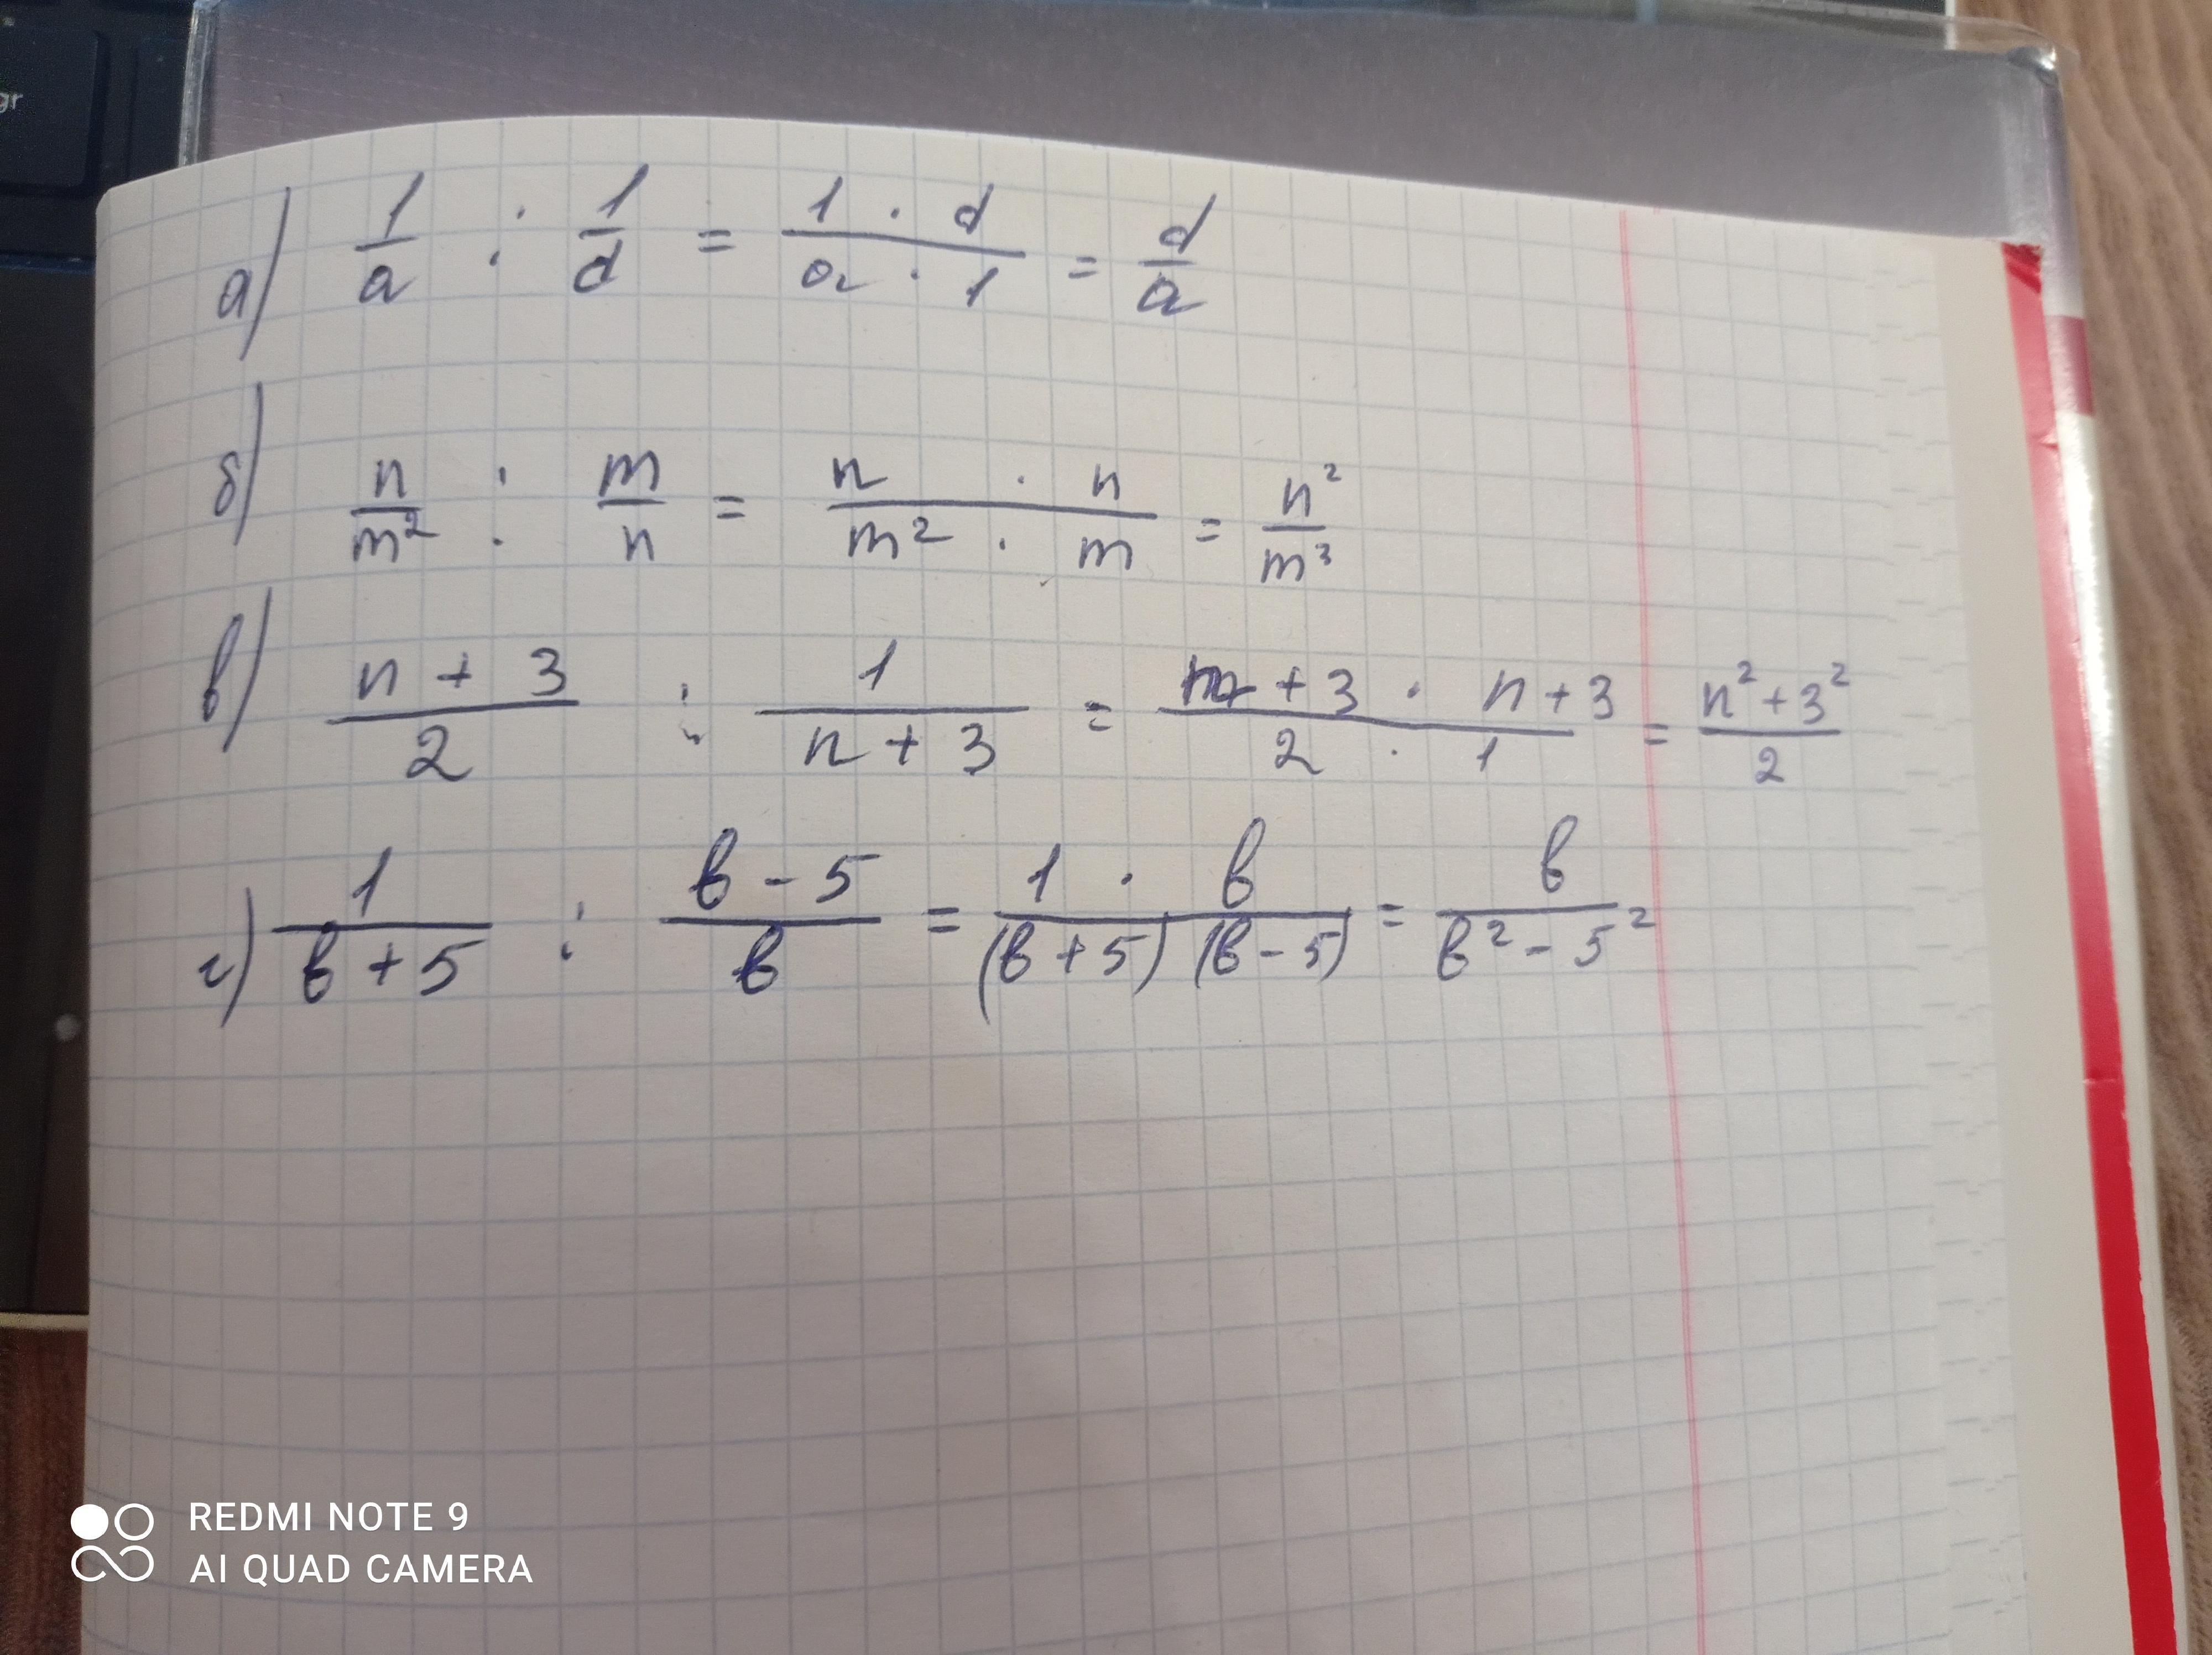 gr
а) 1/a : 1/d = (1 · d)/(a · 1) = d/a
б) n/m² : m/n = (n · n)/(m² · m) = n²/m³
в) (n + 3)/2 : 1/(n + 3) = (n + 3 · n + 3)/(2 · 1) = (n² + 3²)/2
г) 1/(в + 5) : (в - 5)/в = (1 · в)/((в + 5) (в - 5)) = в/(в² - 5²)
REDMI NOTE 9
AI QUAD CAMERA